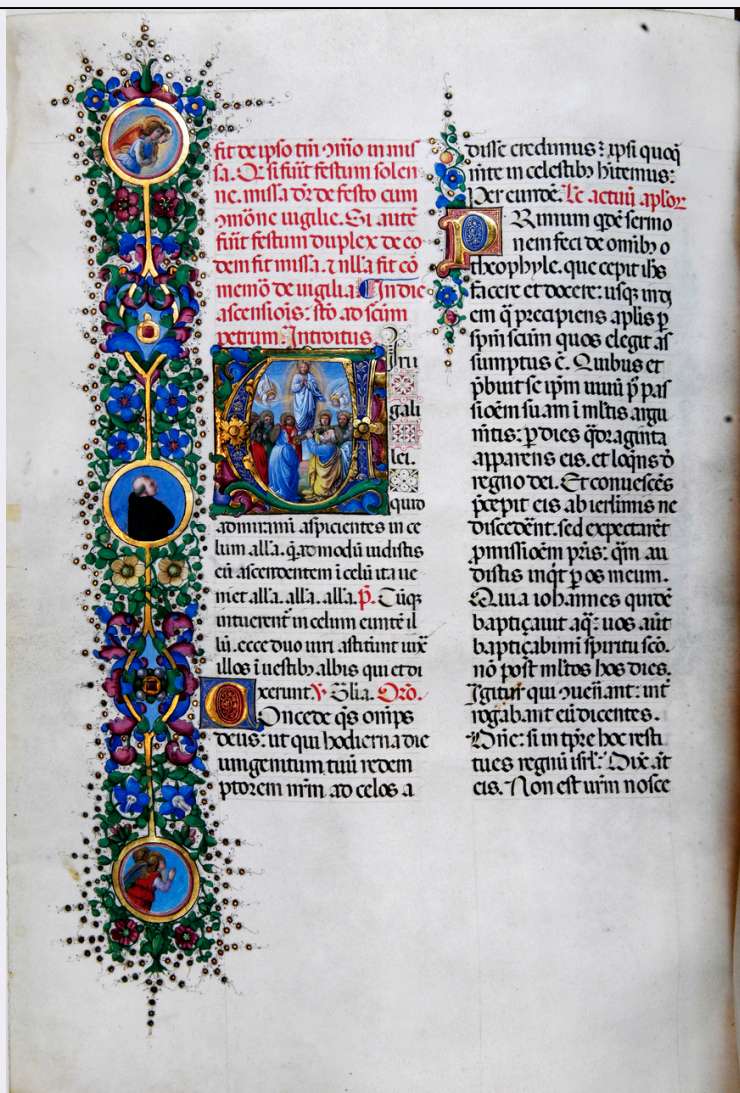 fit de ipso tm̄ ɔmīo in mis
sa. Q̇ si fūit festum solen
ne. missa dr̄ de festo cum
ɔmōne uigilie. Si autē
fūit festum duplex de eo
dem fit missa. ⁊ nulla fit cō
memō de uigilia. In die
ascensiōis: stō ad scūm
petrum. Introitus.
Uiri
gali
lei.
quid
admiramī aspicientes in ce
lum all'a. q̄admodū uidistis
eū ascendentem ī celū ita ue
niet all'a. all'a. all'a. p̄. Cūq;
intuerent̄ in celum euntē il
lū. ecce duo uiri astitert̄ iuxͣ
illos ī uestib; albis qui et di
xerunt ℣. Gl'ia. Orō.
Concede q̄s omīps
deus: ut qui hodierna die
unigenitum tuū redem
ptorem nr̄m ad celos a
disse credimus: ipsi quoq;
mīte in celestib; hītemus:
Per eundē. Le actuū ap̄lor
PRimum qdē sermo
nem feci de omīb; o
theophyle. que cepit ihs
facere et docere: usq; in d
em q̄ precipiens ap̄lis p
sp̄m scūm quos elegit as
sumptus ē. Quibus et
p̄buit se ip̄m uiuū p̄ pas
siōem suam ī mltis argu
mītis: p dies q̄draginta
apparens eis. et loqn̄s d̄
regno dei. Et conuescēs
p̄cepit eis ab ierl'imis ne
discedēnt. sed expectarēt
ꝓmissiōem pr̄is: q̄m au
distis inq̄t p os meum.
Quia iohannes quidē
baptiçauit aq̄: uos aūt
baptiçabimī spiritu scō.
nō post mltos hos dies.
Igitur qui ɔuen̄ant: int̄
rogabant eū dicentes.
Dn̄e: si in tp̄re hoc resti
tues regnū isrl'. Dix̄ āt
eis. Non est ur̄m nosce